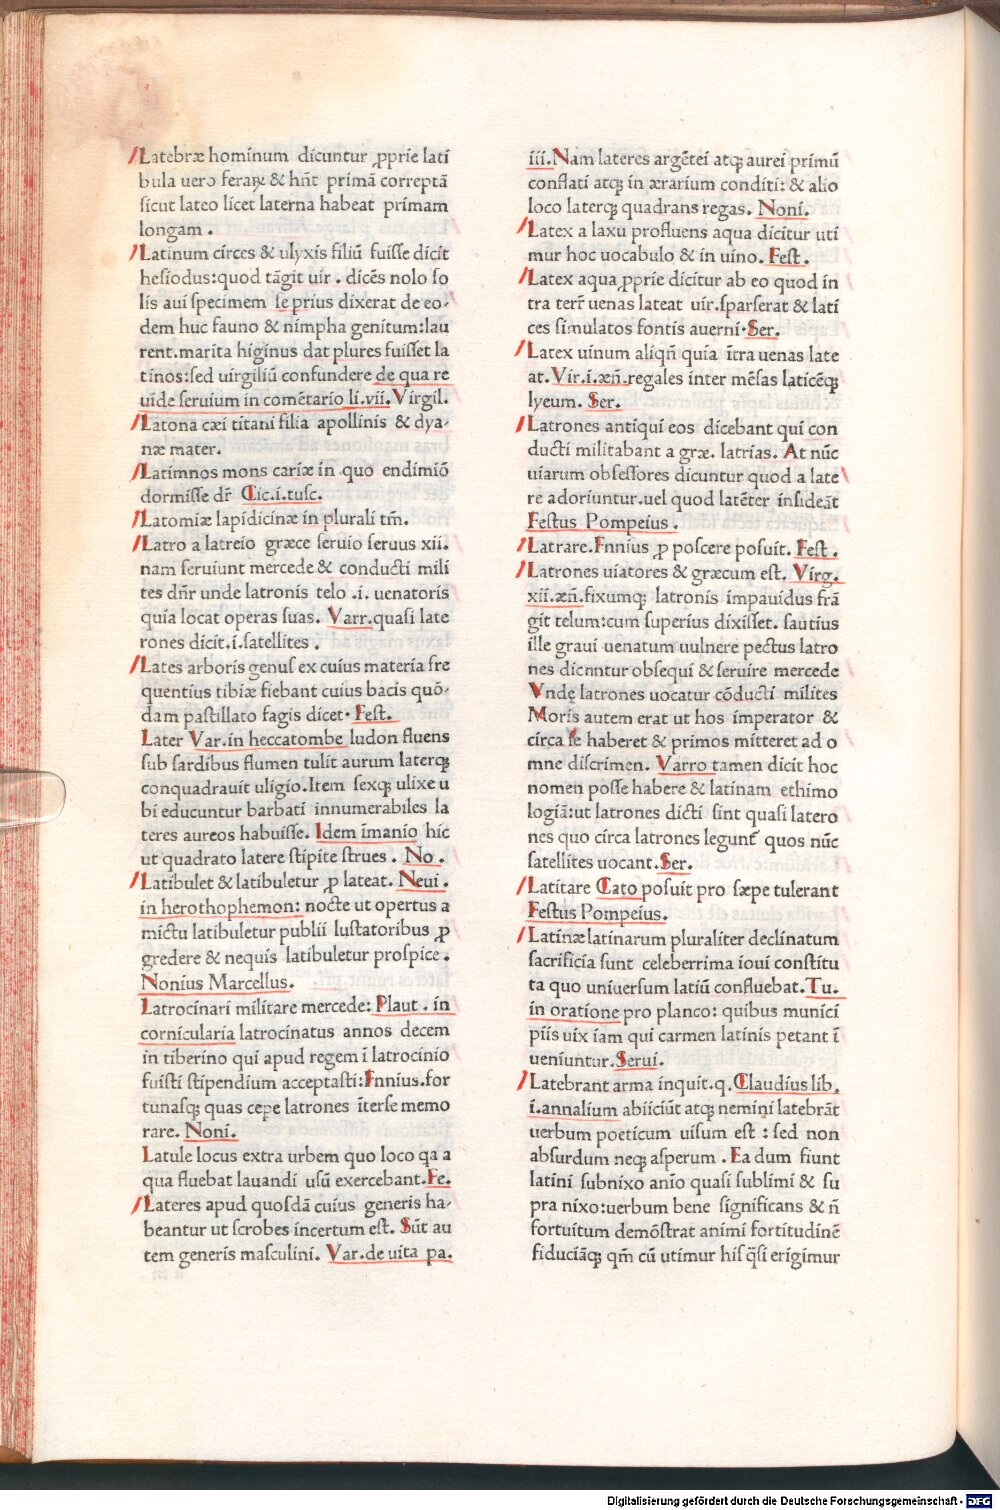 Latebræ hominum dicuntur ꝓprie lati
bula uero feraꝝ & hñt primã correptã
sicut lateo licet laterna habeat primam
longam .
Latinum circes & ulyxis filiũ fuisse dicit
hesiodus:quod tãgit uir . dicẽs nolo so
lis aui specimem se prius dixerat de eo-
dem huc fauno & nimpha genitum:lau
rent.marita higinus dat plures fuisset la
tinos:sed uirgiliũ confundere de qua re
uide seruium in comẽtario li.vii. Virgil.
Latona cæi titani filia apollinis & dya-
næ mater.
Latimnos mons cariæ in quo endimiõ
dormisse dr̃ Cic.i.tusc.
Latomiæ lapidicinæ in plurali tm̃.
Latro a latreio græce seruio seruus xii.
nam seruiunt mercede & conducti mili
tes dñr unde latronis telo .i. uenatoris
quia locat operas suas. Varr.quasi late
rones dicit.i.satellites .
Lates arboris genus ex cuius materia fre
quentius tibiæ fiebant cuius bacis quõ-
dam pastillato fagis dicet· Fest.
Later Var.in heccatombe ludon fluens
sub sardibus flumen tulit aurum laterqꝫ
conquadrauit uligio.Item sexqꝫ ulixe u
bi educuntur barbati innumerabiles la
teres aureos habuisse. Idem ĩmanio hic
ut quadrato latere stipite strues . No .
Latibulet & latibuletur ꝓ lateat. Neui .
in herothophemon: nocte ut opertus a
mictu latibuletur publii lustatoribus ꝓ
gredere & nequis latibuletur prospice .
Nonius Marcellus.
Latrocinari militare mercede: Plaut . in
cornicularia latrocinatus annos decem
in tiberino qui apud regem ĩ latrocinio
fuisti stipendium acceptasti:Ennius.for
tunasqꝫ quas cepe latrones ĩterse memo
rare. Noni.
Latule locus extra urbem quo loco qa a
qua fluebat lauandi usũ exercebant.Fe.
Lateres apud quosdã cuius generis ha-
beantur ut scrobes incertum est. Sũt au
tem generis masculini. Var.de uita pa.
iii.Nam lateres argẽtei atqꝫ aurei primũ
conflati atqꝫ in ærarium conditi: & alio
loco laterqꝫ quadrans regas. Noni.
Latex a laxu profluens aqua dicitur uti
mur hoc uocabulo & in uino. Fest .
Latex aqua ꝓprie dicitur ab eo quod in
tra terr̃ uenas lateat uir.sparserat & lati
ces simulatos fontis auerni·Ser.
Latex uinum aliqñ quia ĩtra uenas late
at.Vir.i.æñ.regales inter mẽsas laticẽqꝫ
lyeum. Ser.
Latrones antiqui eos dicebant qui con
ducti militabant a græ. latrias. At nũc
uiarum obsessores dicuntur quod a late
re adoriuntur.uel quod latẽter insideãt
Festus Pompeius .
Latrare.Ennius ꝓ poscere posuit. Fest .
Latrones uiatores & græcum est. Virg.
xii.æñ.fixumqꝫ latronis impauidus frã
git telum:cum superius dixisset. sautius
ille graui uenatum uulnere pectus latro
nes dicnntur obsequi & seruire mercede
Vndę latrones uocatur cõducti milites
Moris autem erat ut hos imperator &
circa se haberet & primos mitteret ad o
mne discrimen. Varro tamen dicit hoc
nomen posse habere & latinam ethimo
logiã:ut latrones dicti sint quasi latero
nes quo circa latrones legunt᷑ quos nũc
satellites uocant.Ser.
Latitare Cato posuit pro sæpe tulerant
Festus Pompeius.
Latinæ latinarum pluraliter declinatum
sacrificia sunt celeberrima ioui constitu
ta quo uniuersum latiũ confluebat.Tu.
in oratione pro planco: quibus munici
piis uix iam qui carmen latinis petant ĩ
ueniuntur.Serui.
Latebrant arma inquit.q.Claudius lib.
i.annalium abiiciũt atqꝫ nemini latebrãt
uerbum poeticum uisum est : sed non
absurdum neqꝫ asperum . Ea dum fiunt
latini subnixo anio quasi sublimi & su
pra nixo:uerbum bene significans & ñ
fortuitum demõstrat animi fortitudinẽ
fiduciãqꝫ qm̃ cũ utimur his q̃si erigimur
Digitalisierung gefördert durch die Deutsche Forschungsgemeinschaft - DFG